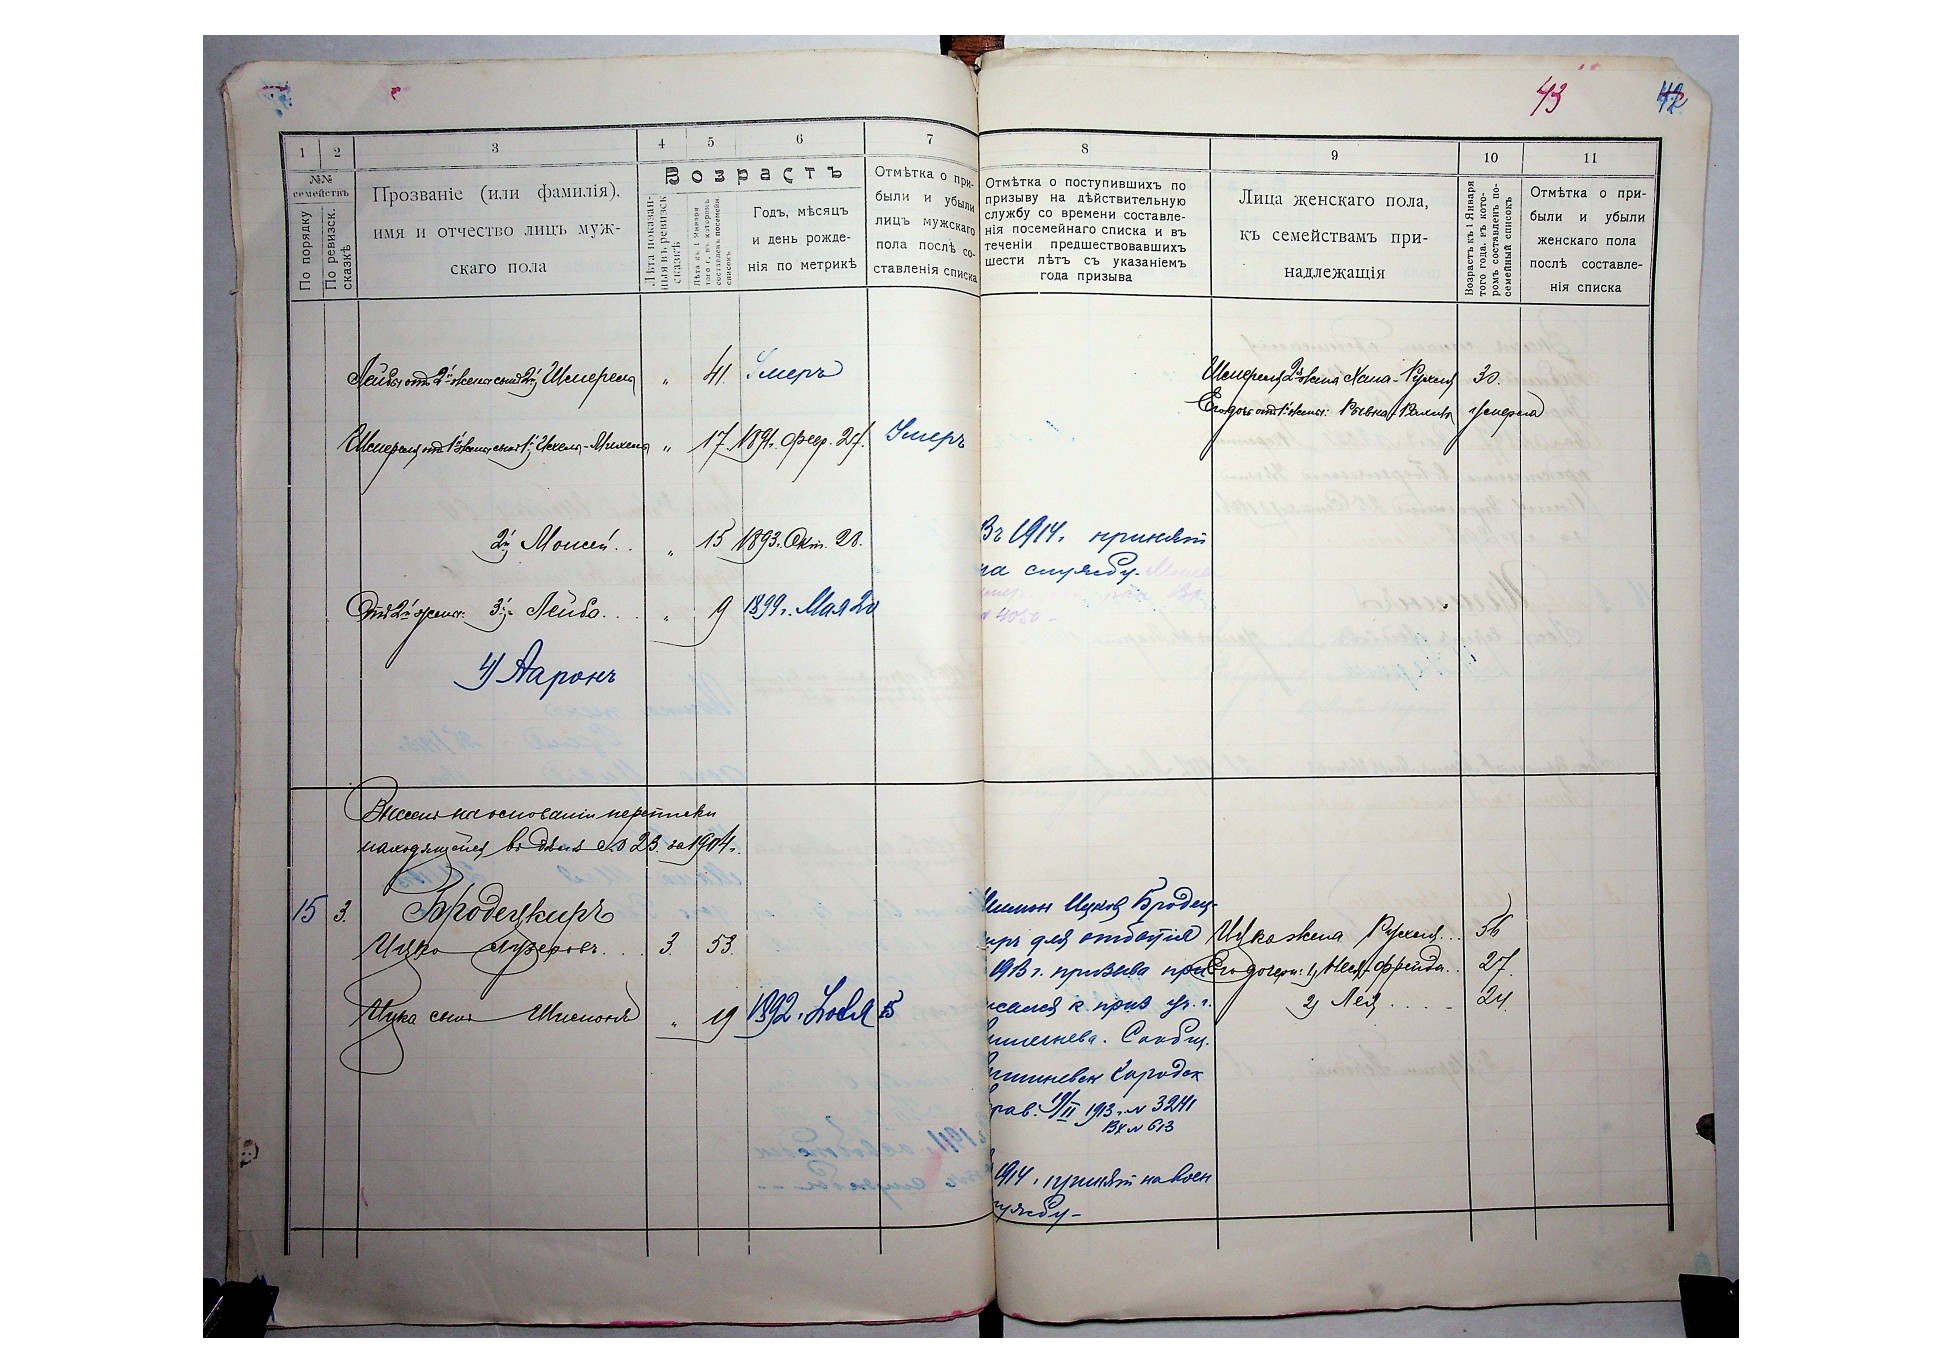 43
42
1
2
3
4
5
6
7
8
9
10
11
№№
семействъ
По порядку
По ревизск. сказкѣ
Прозваніе (или фамилія),
имя и отчество лицъ муж-
скаго пола
Возрастъ
Лѣта показан-
ныя въ ревизск
сказкѣ
Лѣта къ 1 Января
того г., въ которомъ
составленъ посемейн.
списокъ
Годъ, мѣсяцъ
и день рожде-
нія по метрикѣ
Отмѣтка о при-
были и убыли
лицъ мужскаго
пола послѣ со-
ставленія списка
Отмѣтка о поступившихъ по
призыву на дѣйствительную
службу со времени составле-
нія посемейнаго списка и въ
теченіи предшествовавшихъ
шести лѣтъ съ указаніемъ
года призыва
Лица женскаго пола,
къ семействамъ при-
надлежащія
Возрастъ къ 1 Января
того года, въ кото-
ромъ составленъ по-
семейный списокъ
Отмѣтка о при-
были и убыли
женскаго пола
послѣ составле-
нія списка
Лейбы отъ 2й жены сынъ 2й Шмерель " 41. Умеръ
Шмереля 2я жена Хана-Рухля 30.
Его дочь отъ 1й жены: Ривка умерла
Шмереля отъ 1й жены сынъ 1й " 17. 1891 г. февр. 27. Умеръ
2й Моисей.. " 15 1893 г. Окт. 28.
Въ 1914 г. принятъ
на службу.
Отъ 2й жены: 3й Лейба.... " 9 1899 г. Мая 20
№ 4050
4) Ааронъ
на основаніи переписки
находящейся въ дѣлѣ № 23. за 1904 г.
15 3. Бродецкиръ
Ицко ... 3. 53.
Ицко жена Рухля... 56
Его дочери: 1) Нися-Фрейда.. 27.
2) Лея..... 24.
Ицка сынъ Шимонъ " 19 1892 г. Ноября 15
Шимон Ицков Бродец-
киръ для отбытія
1913 г. призыва при
писался к приз. уч. г.
Кишинева. Сообщ.
Кишиневск Городск
Управ. 19/II 1913 г. № 3241
Вх № 613
1914 г. принят на воен
службу-